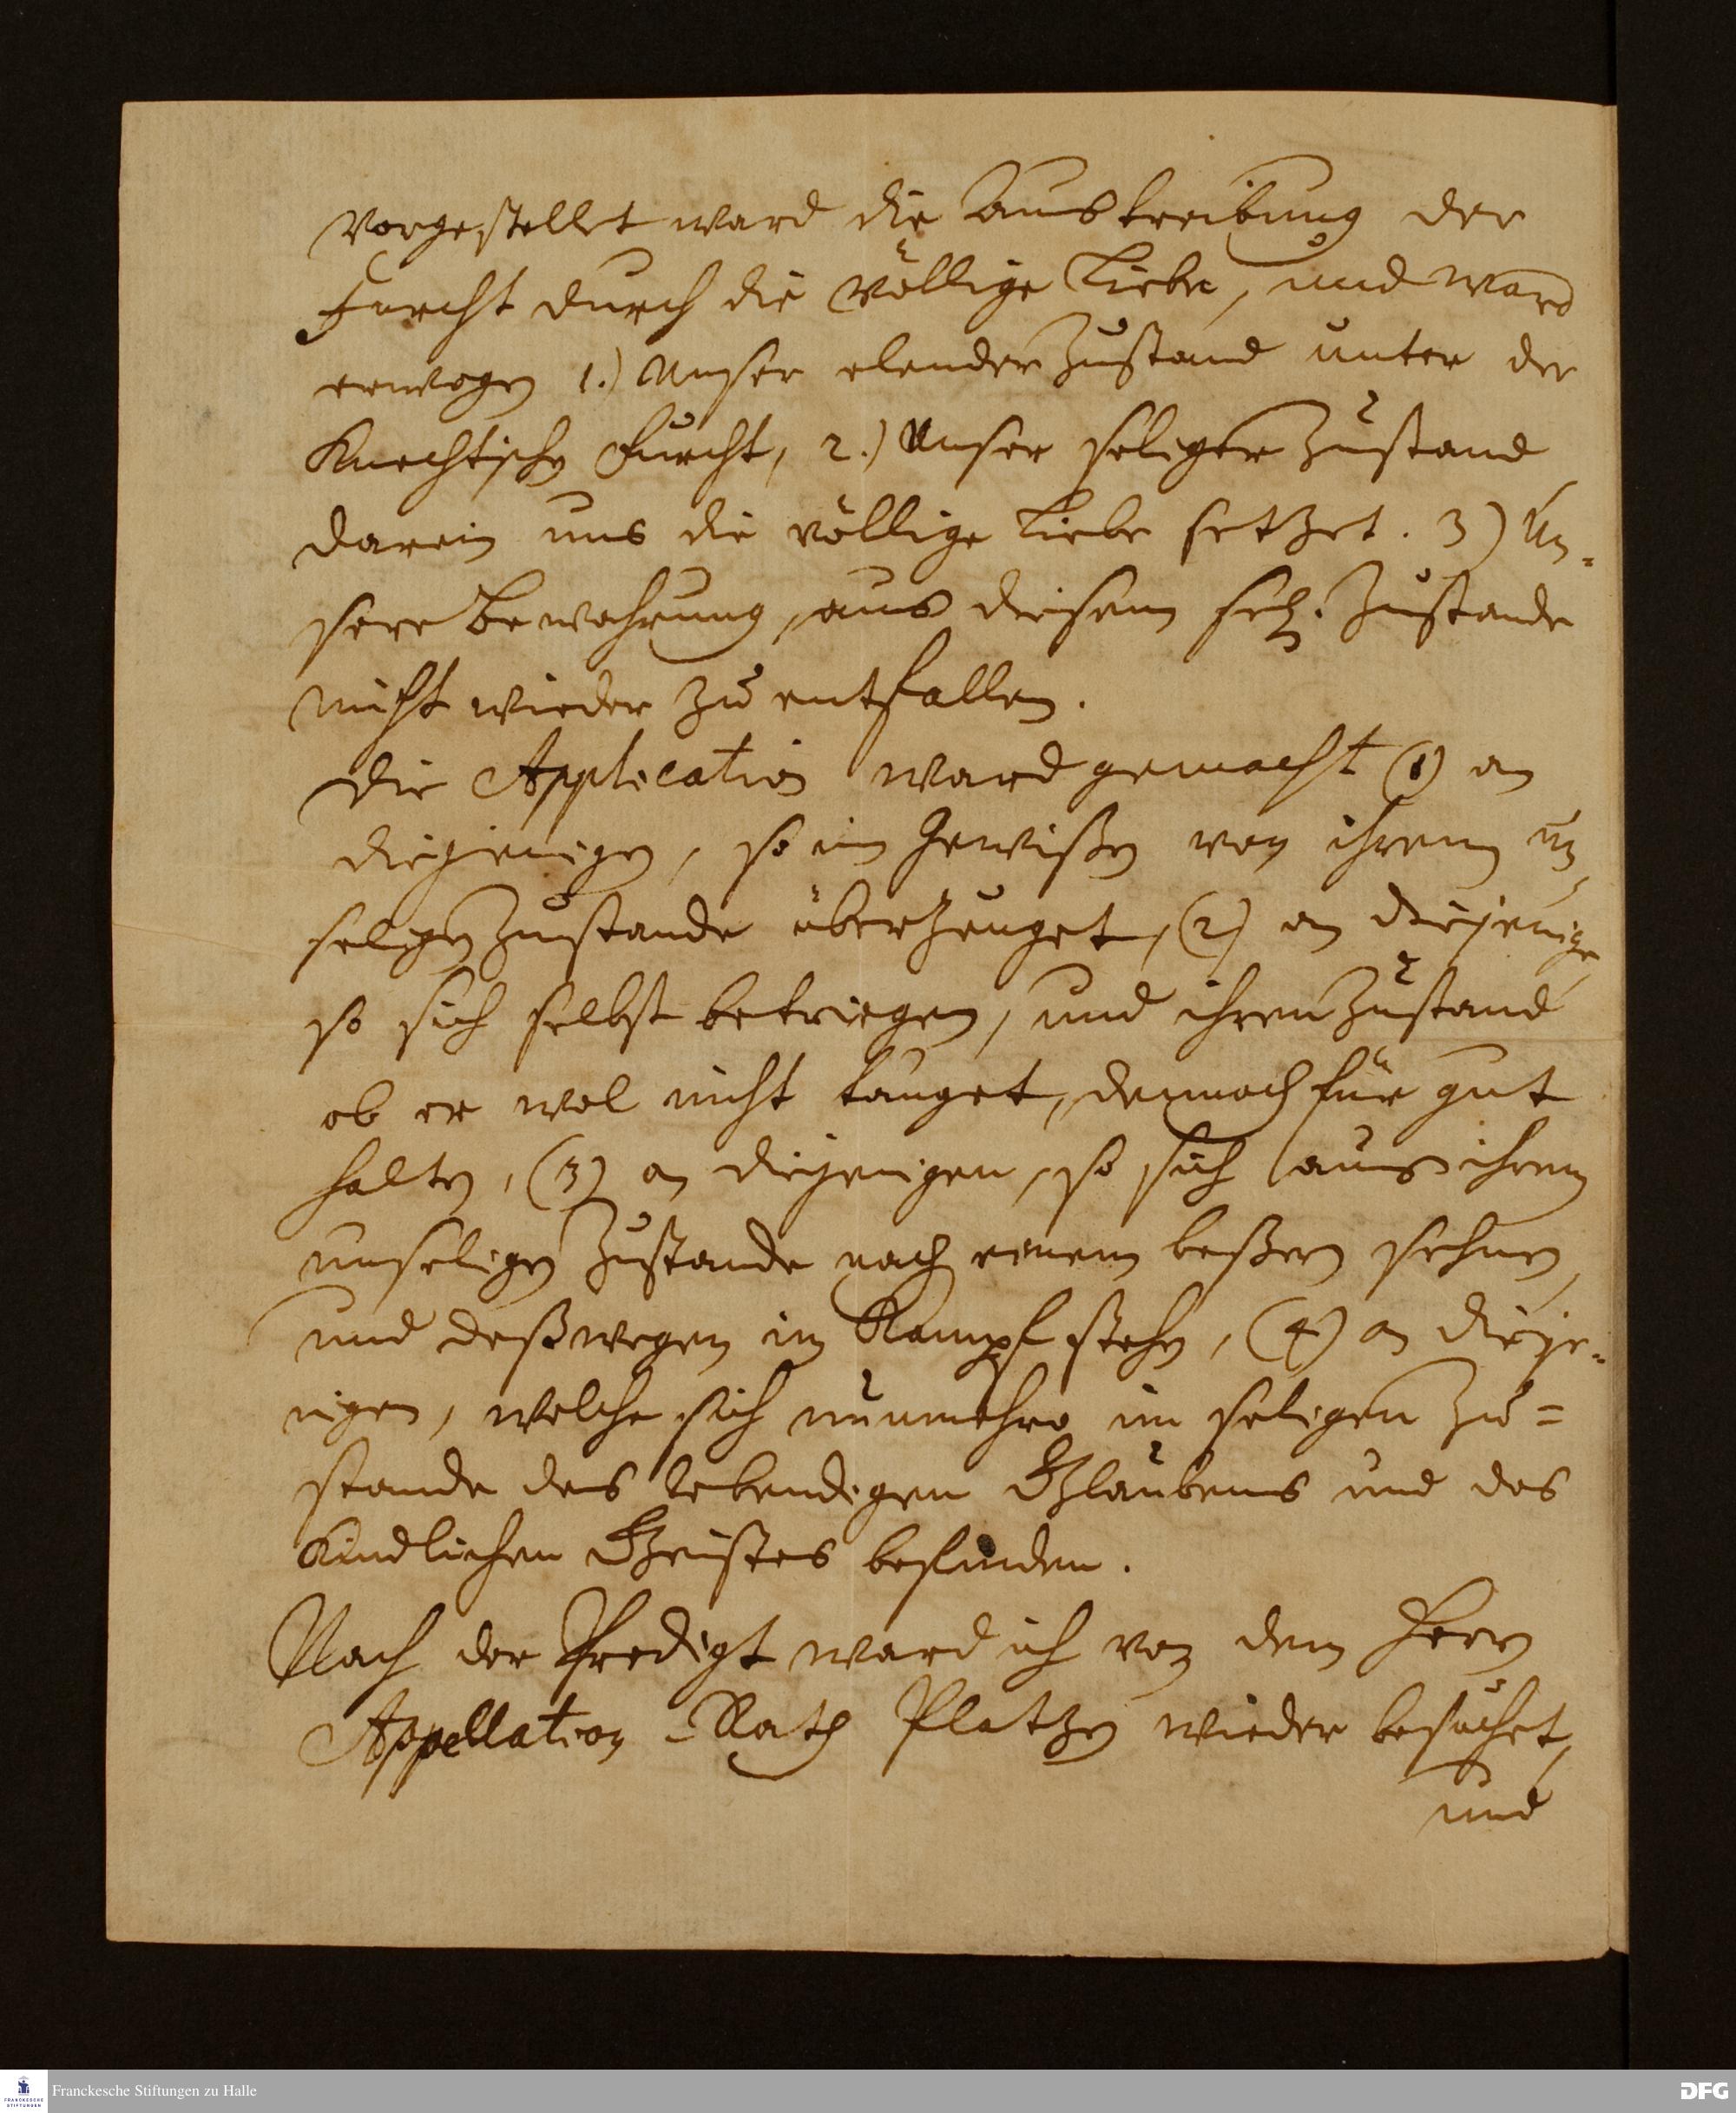 vorgestellet ward die Austreibung der
Furcht durch die völlige Liebe, und ward
erwogen 1.) Unser elender Zustand unter der
Knechtischen Furcht, 2.) Unser seliger Zustand
darein uns die völlige Liebe setzet. 3) Un-
sere Bewahrung, aus diesem sel. Zustande
nicht wieder zu entfallen.
Die Application ward gemacht (1) an
diejenigen, so im Gewißen von ihrem un-
seligen Zustande überzeuget, (2) an diejenige
so sich selbst betriegen, und ihren Zustand
ob er wol nicht tauget, dennoch für gut
halten, (3) an diejenigen, so sich aus ihrem
unseligen Zustande nach einem beßern sehnen,
und deßwegen in Kampf stehen, (4) an dieje-
nigen, welche sich nunmehro im seligen Zu=
stande des lebendigen Glaubens und des
Kindlichen Geistes befinden.
Nach der Predigt ward ich von dem Herrn
Appellation-Rath Platzen wieder besuchet,
und
Franckesche Stiftungen zu Halle
FRANCKESCHE STIFTUNGEN
DFG